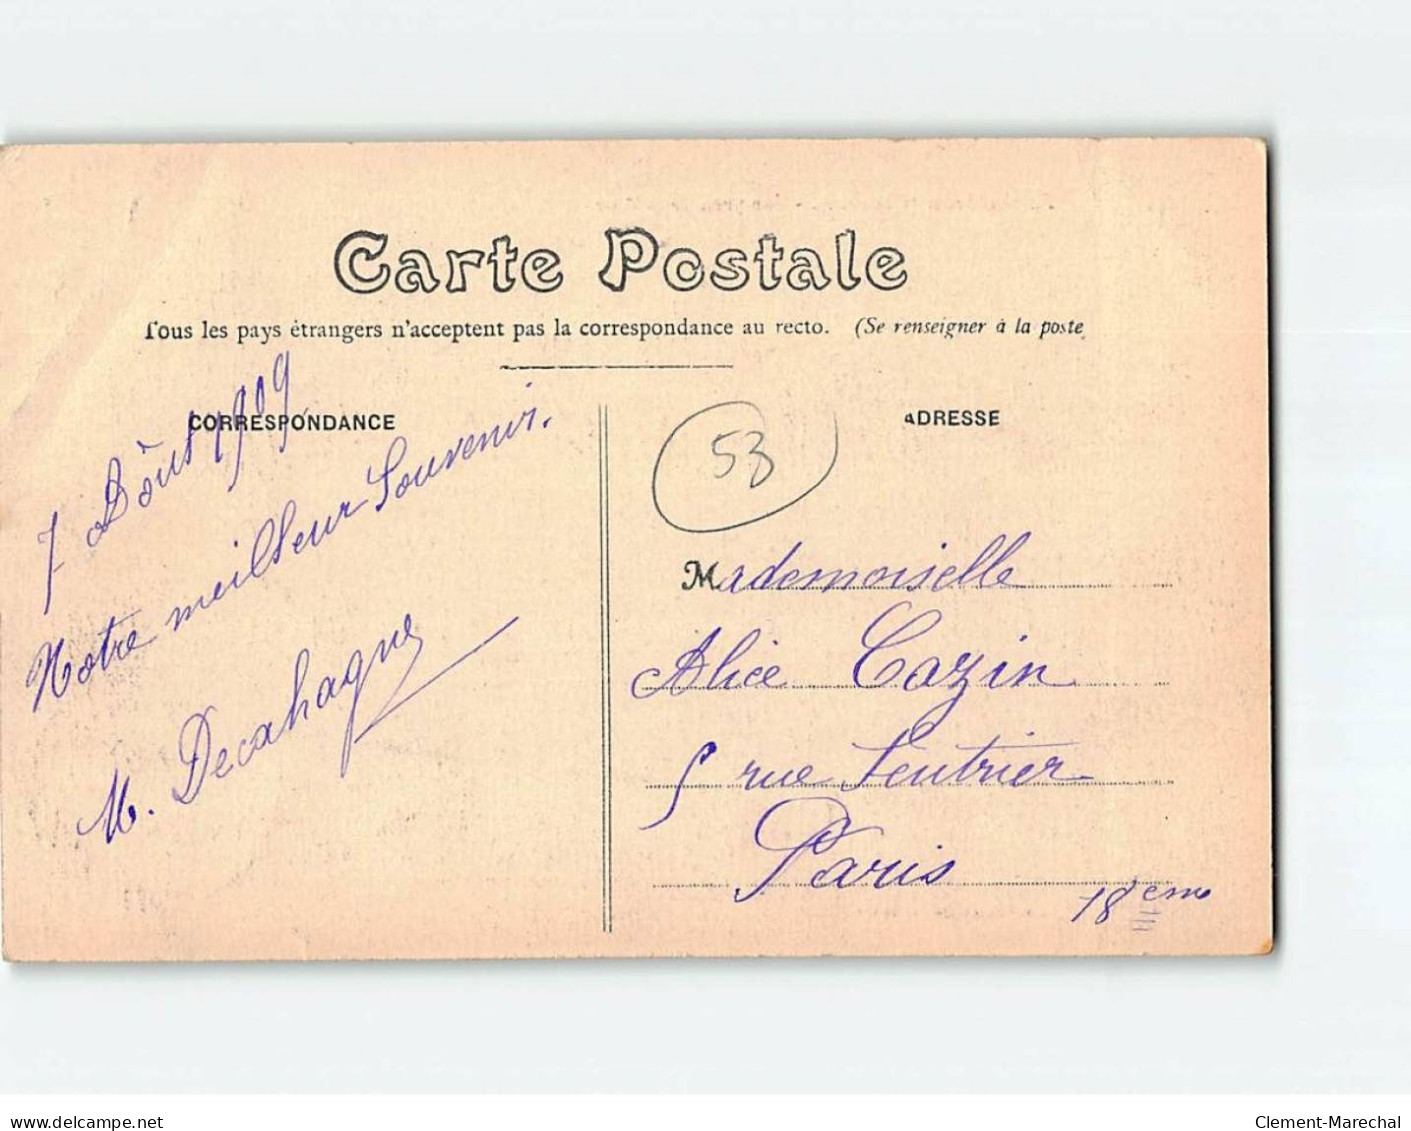 Carte Postale
Tous les pays étrangers n'acceptent pas la correspondance au recto. (Se renseigner à la poste
CORRESPONDANCE
7 Aôut 1909
Notre meilleur Souvenir.
M. Decahague
ADRESSE
53
Mademoiselle
Alice Cazin
5 rue Feutrier
Paris
18ème
www.delcampe.net
Clement-Marechal